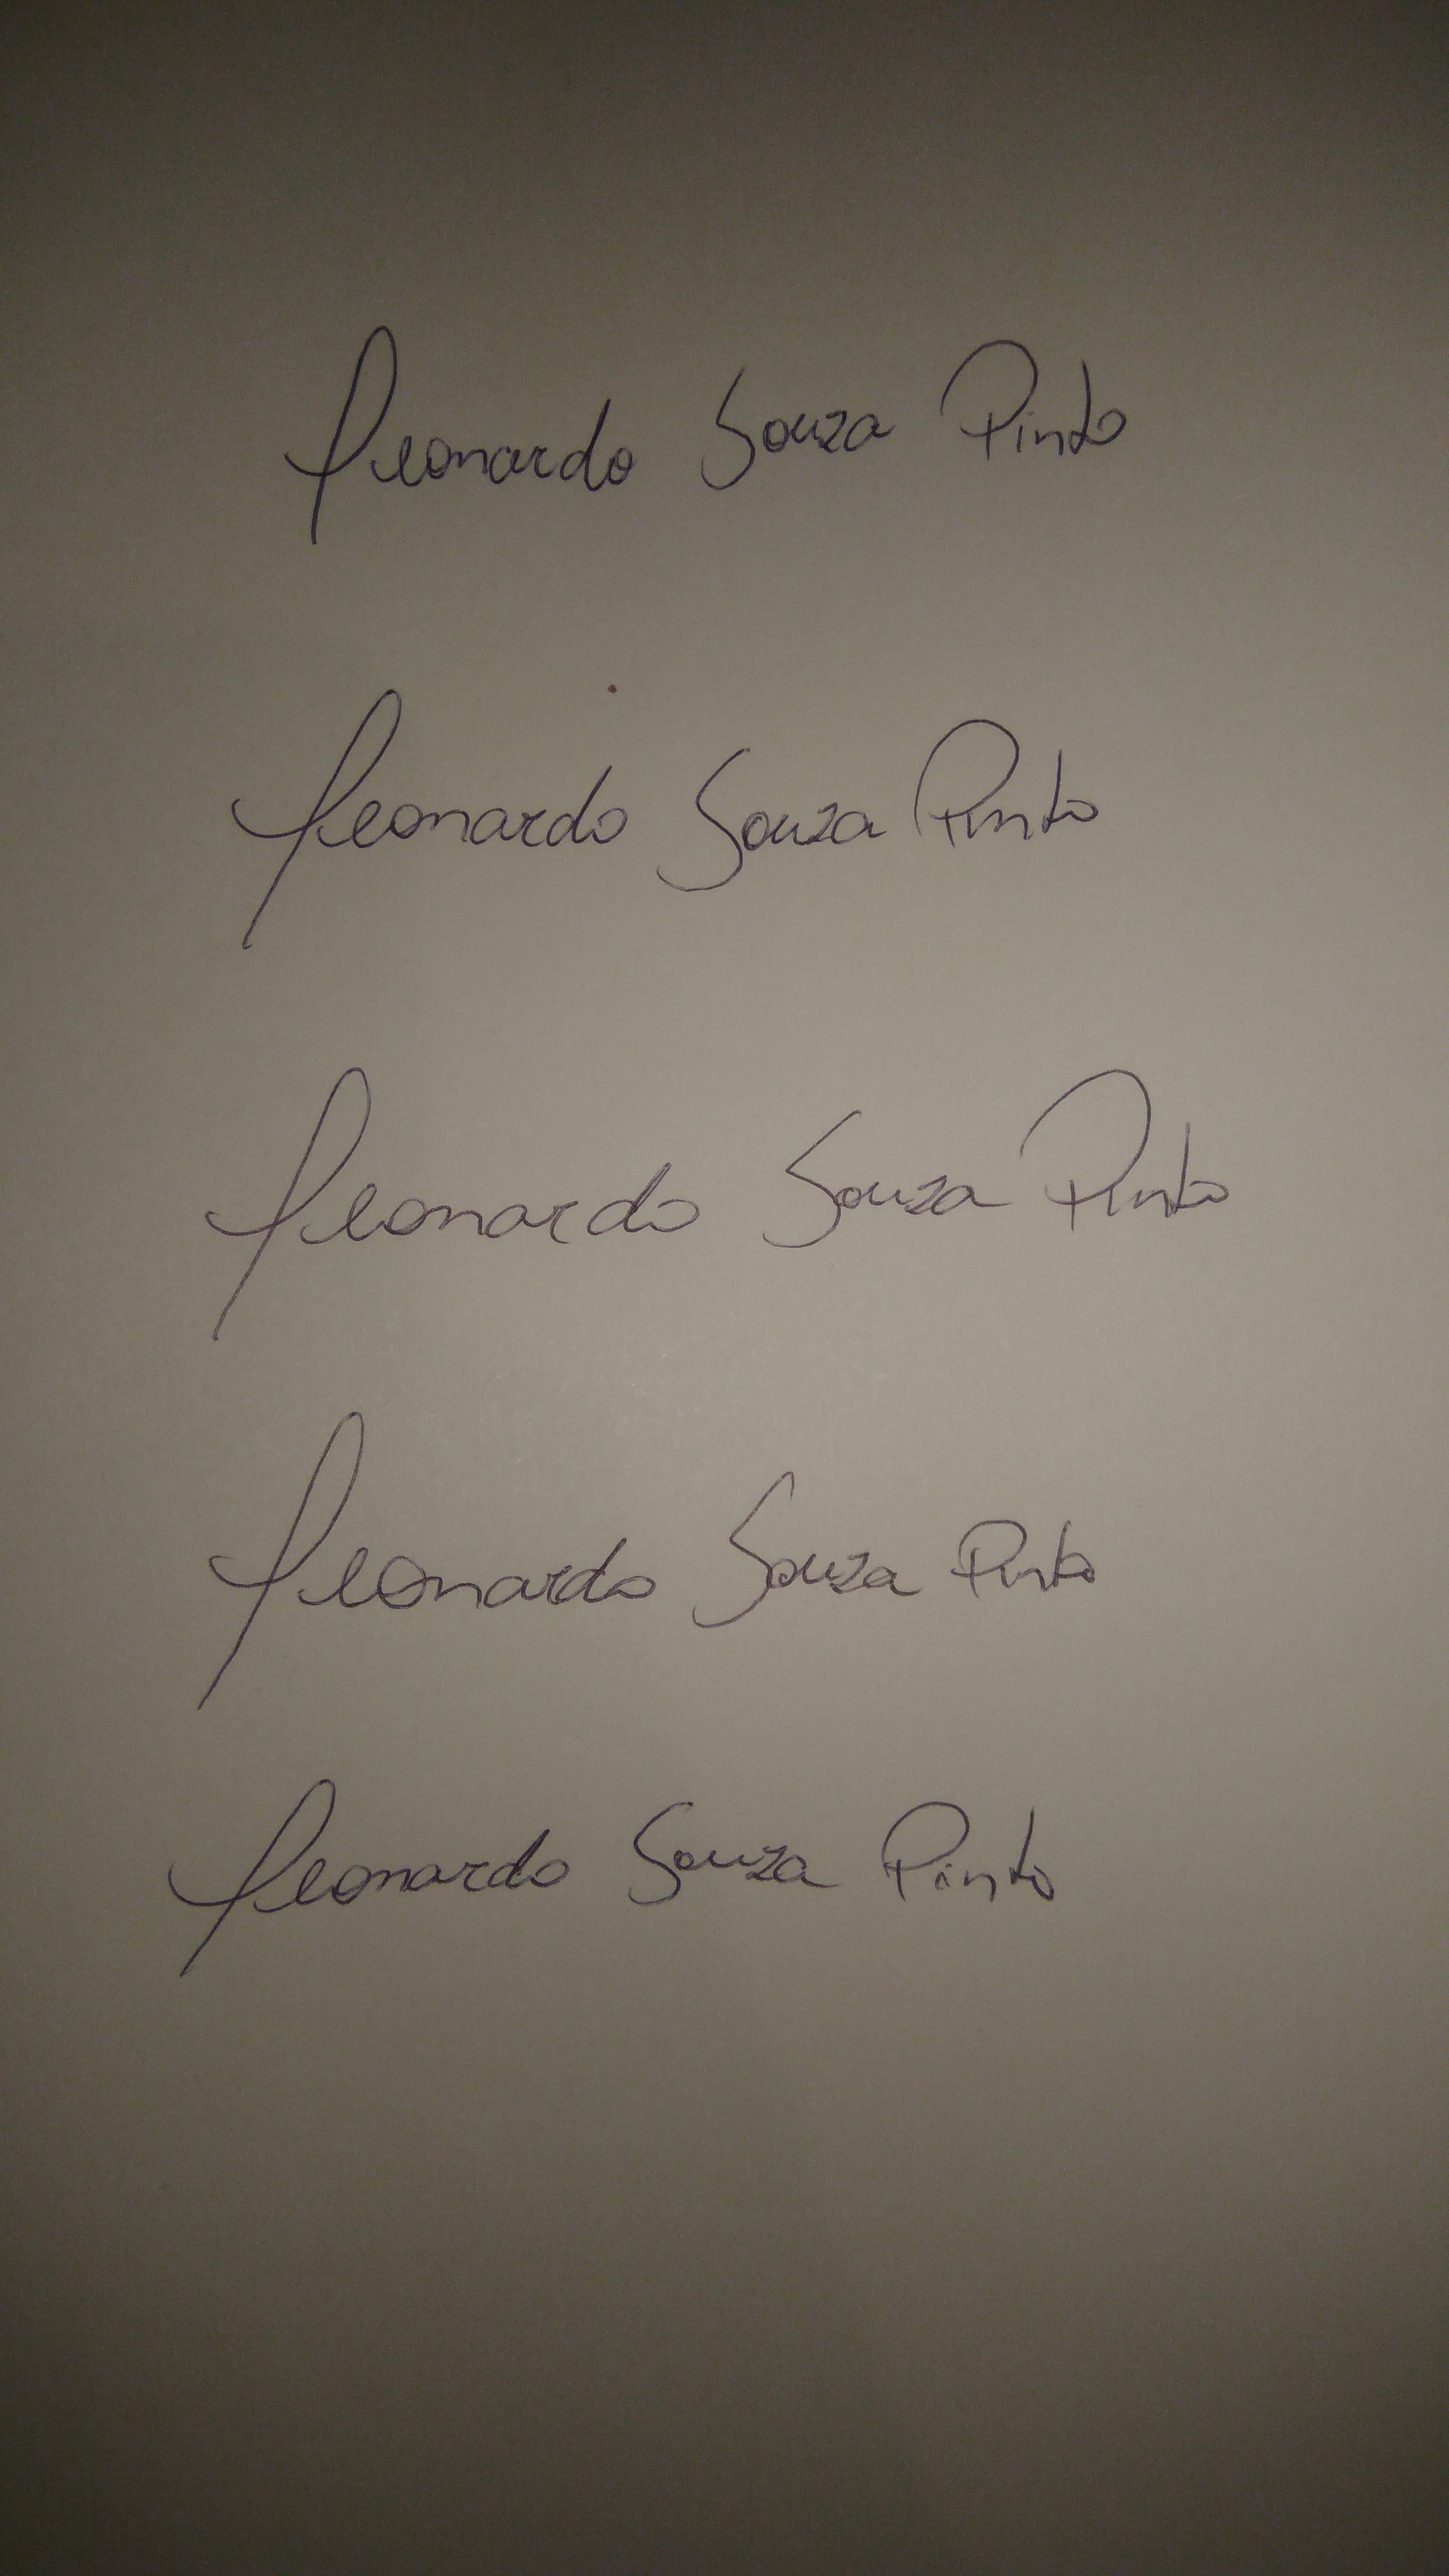 Leonardo Souza Pinto
Leonardo Souza Pinto
Leonardo Souza Pinto
Leonardo Souza Pinto
Leonardo Souza Pinto